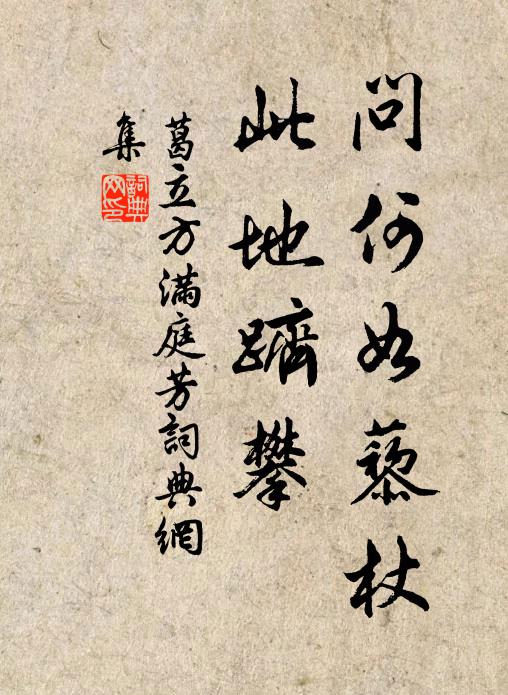 問何如藜杖
此地躋攀
葛立方滿庭芳詞典網
集
詞典网印